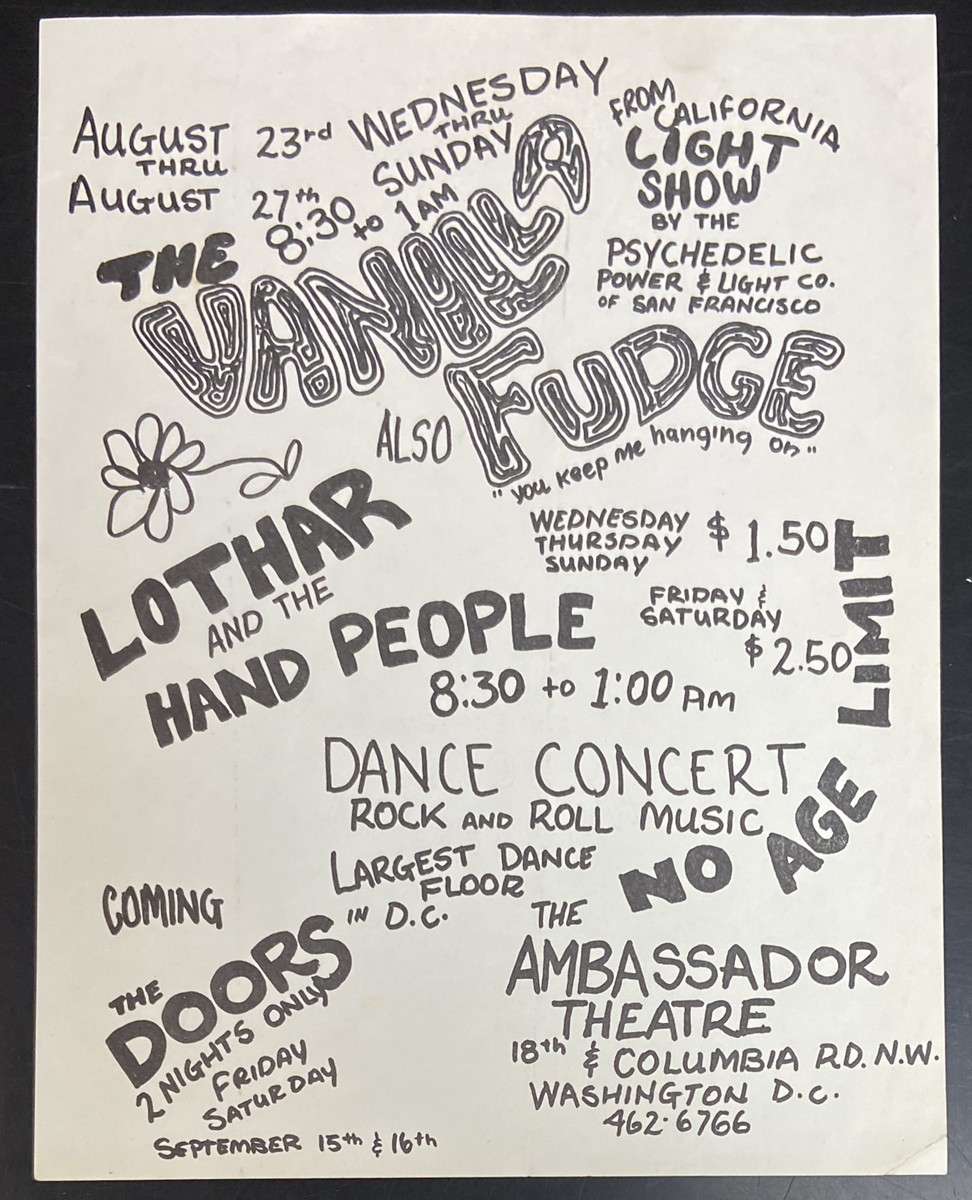 AUGUST 23rd
THRU
AUGUST 27th
WEDNESDAY
THRU
SUNDAY
8:30 to 1AM
FROM CALIFORNIA
LIGHT
SHOW
BY THE
PSYCHEDELIC
POWER & LIGHT CO.
OF SAN FRANCISCO
THE
VANILLA
FUDGE
"you keep me hanging on"
ALSO
LOTHAR
AND THE
HAND PEOPLE
8:30 to 1:00 PM
WEDNESDAY
THURSDAY
SUNDAY
$ 1.50
FRIDAY &
SATURDAY
$ 2.50
NO AGE LIMIT
DANCE CONCERT
ROCK AND ROLL MUSIC
LARGEST DANCE
FLOOR
IN D.C.
COMING
THE
DOORS
2 NIGHTS ONLY
FRIDAY
SATURDAY
SEPTEMBER 15th & 16th
THE
AMBASSADOR
THEATRE
18th & COLUMBIA RD. N.W.
WASHINGTON D.C.
462-6766